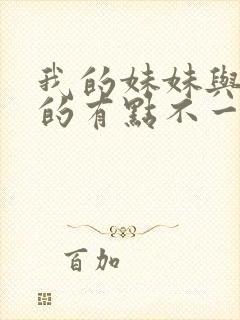 我的妹妹與
的有點不一
百加